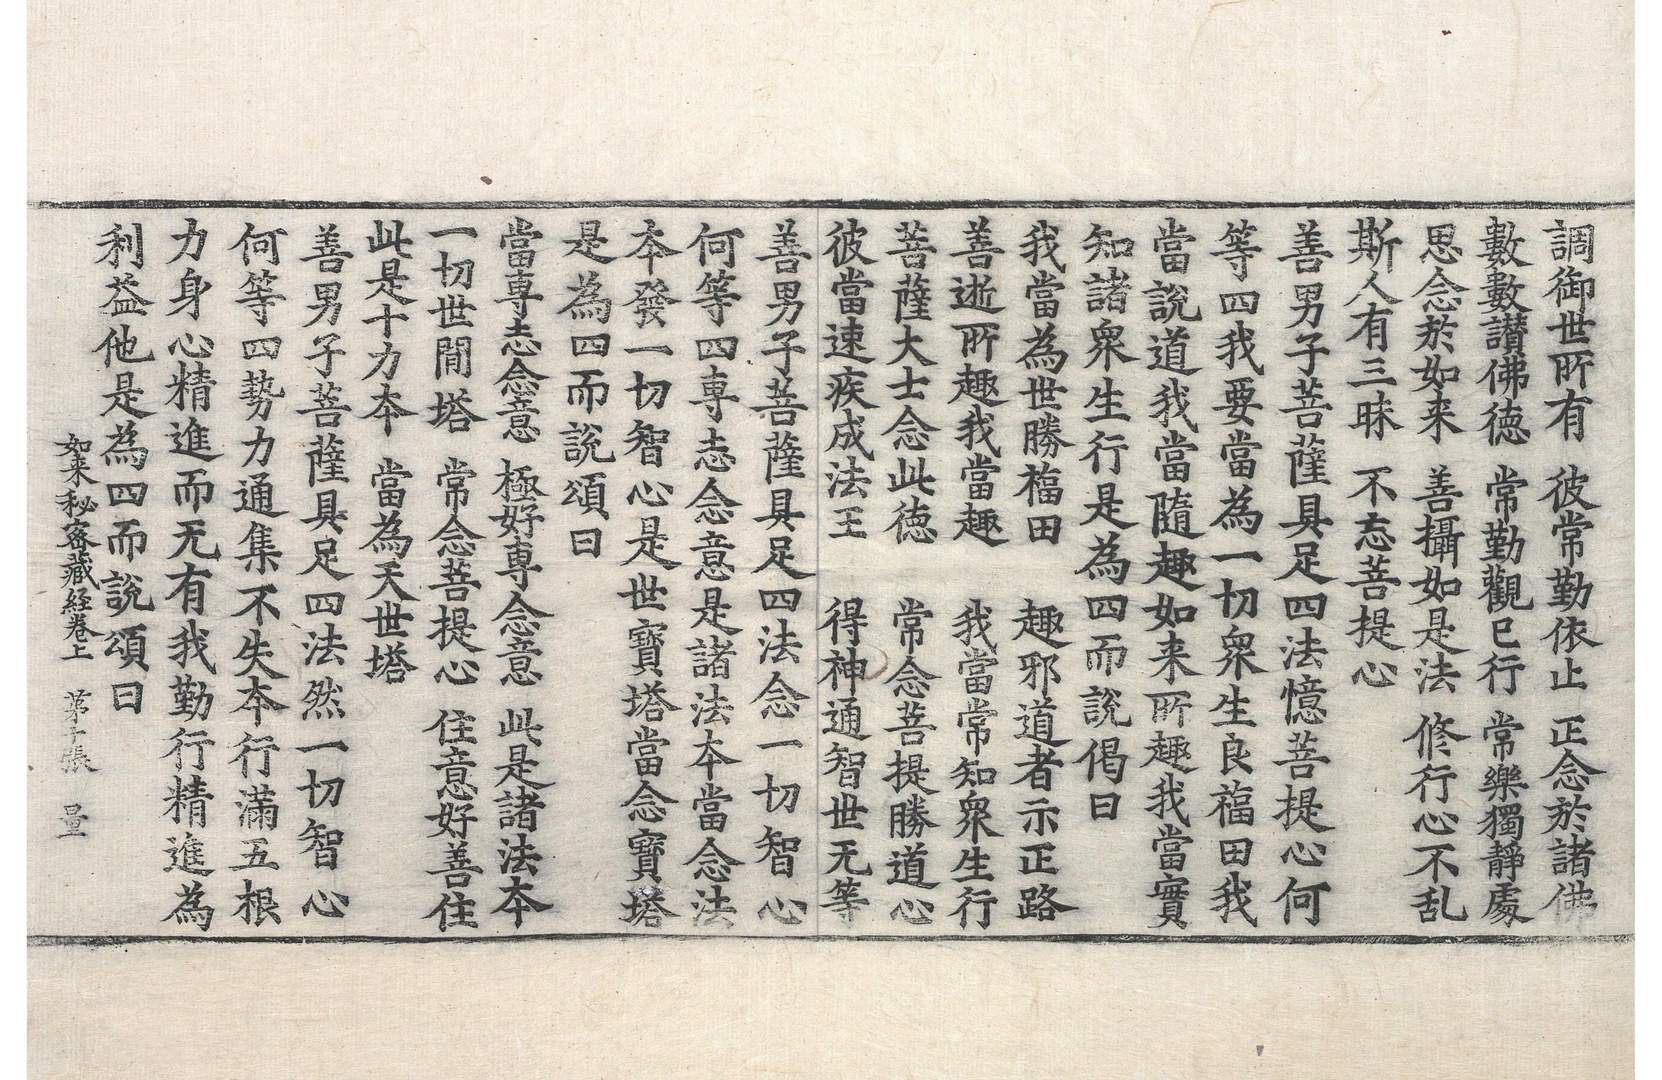 調御世所有 彼常勤依止 正念於諸佛
數數讃佛德 常勤觀已行 常樂獨靜處
思念於如来 善攝如是法 修行心不乱
斯人有三昧 不忘菩提心
善男子菩薩具足四法憶菩提心何
等四我要當為一切衆生良福田我
當說道我當隨趣如来所趣我當實
知諸衆生行是為四而說偈曰
我當為世勝福田 趣邪道者示正路
善逝所趣我當趣 我當常知衆生行
菩薩大士念此德 常念菩提勝道心
彼當速疾成法王 得神通智世无等
善男子菩薩具足四法念一切智心
何等四専志念意是諸法本當念法
本發一切智心是世寶塔當念寶塔
是為四而說頌曰
當専志念意 極好専念意 此是諸法本
一切世間塔 常念菩提心 住意好善住
此是十力本 當為天世塔
善男子菩薩具足四法然一切智心
何等四勢力通集不失本行滿五根
力身心精進而无有我勤行精進為
利益他是為四而說頌曰
如来秘密藏経卷上 苐十張 量